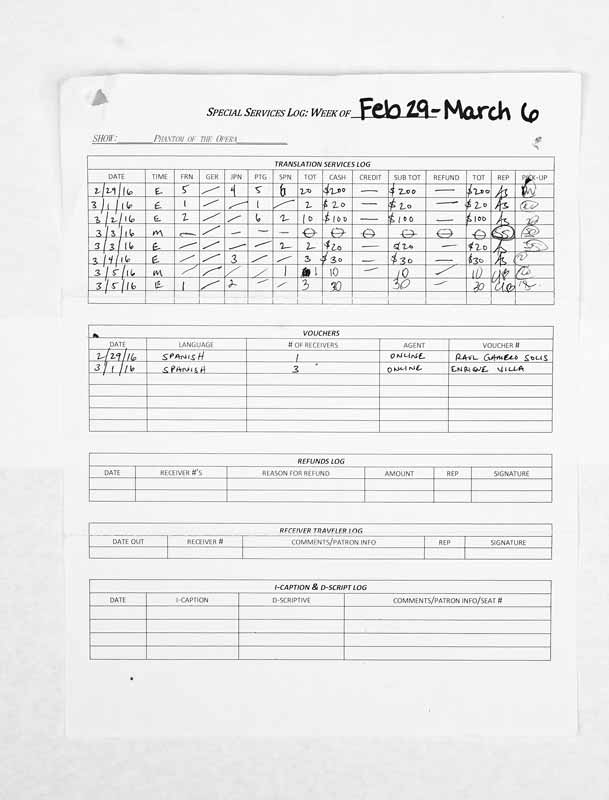 SPECIAL SERVICES LOG: WEEK OF Feb 29-March 6
SHOW: PHANTOM OF THE OPERA
TRANSLATION SERVICES LOG
DATE TIME FRN GER JPN PTG SPN TOT CASH CREDIT SUB TOT REFUND TOT REP PICK-UP
2/29/16 E 5 — 4 5 6 20 $200 — $200 — $200 AB
3/1/16 E 1 — — 1 — 2 $20 — $20 — $20 AB
3/2/16 E 2 — — 6 2 10 $100 — $100 — $100 AB
3/3/16 M — — — — — 0 0 0 0 0 0
3/3/16 E — — — — 2 2 $20 — $20 — $20 AB
3/4/16 E — — 3 — — 3 $30 — $30 — $30 AB
3/5/16 M — — — — 1 1 10 — 10 — 10
3/5/16 E 1 — 2 — — 3 30 — 30 — 30
VOUCHERS
DATE LANGUAGE # OF RECEIVERS AGENT VOUCHER #
2/29/16 SPANISH 1 ONLINE RAUL GAMERO SOLIS
3/1/16 SPANISH 3 ONLINE ENRIQUE VILLA
REFUNDS LOG
DATE RECEIVER #'S REASON FOR REFUND AMOUNT REP SIGNATURE
RECEIVER TRAVELER LOG
DATE OUT RECEIVER # COMMENTS/PATRON INFO REP SIGNATURE
I-CAPTION & D-SCRIPT LOG
DATE I-CAPTION D-SCRIPTIVE COMMENTS/PATRON INFO/SEAT #